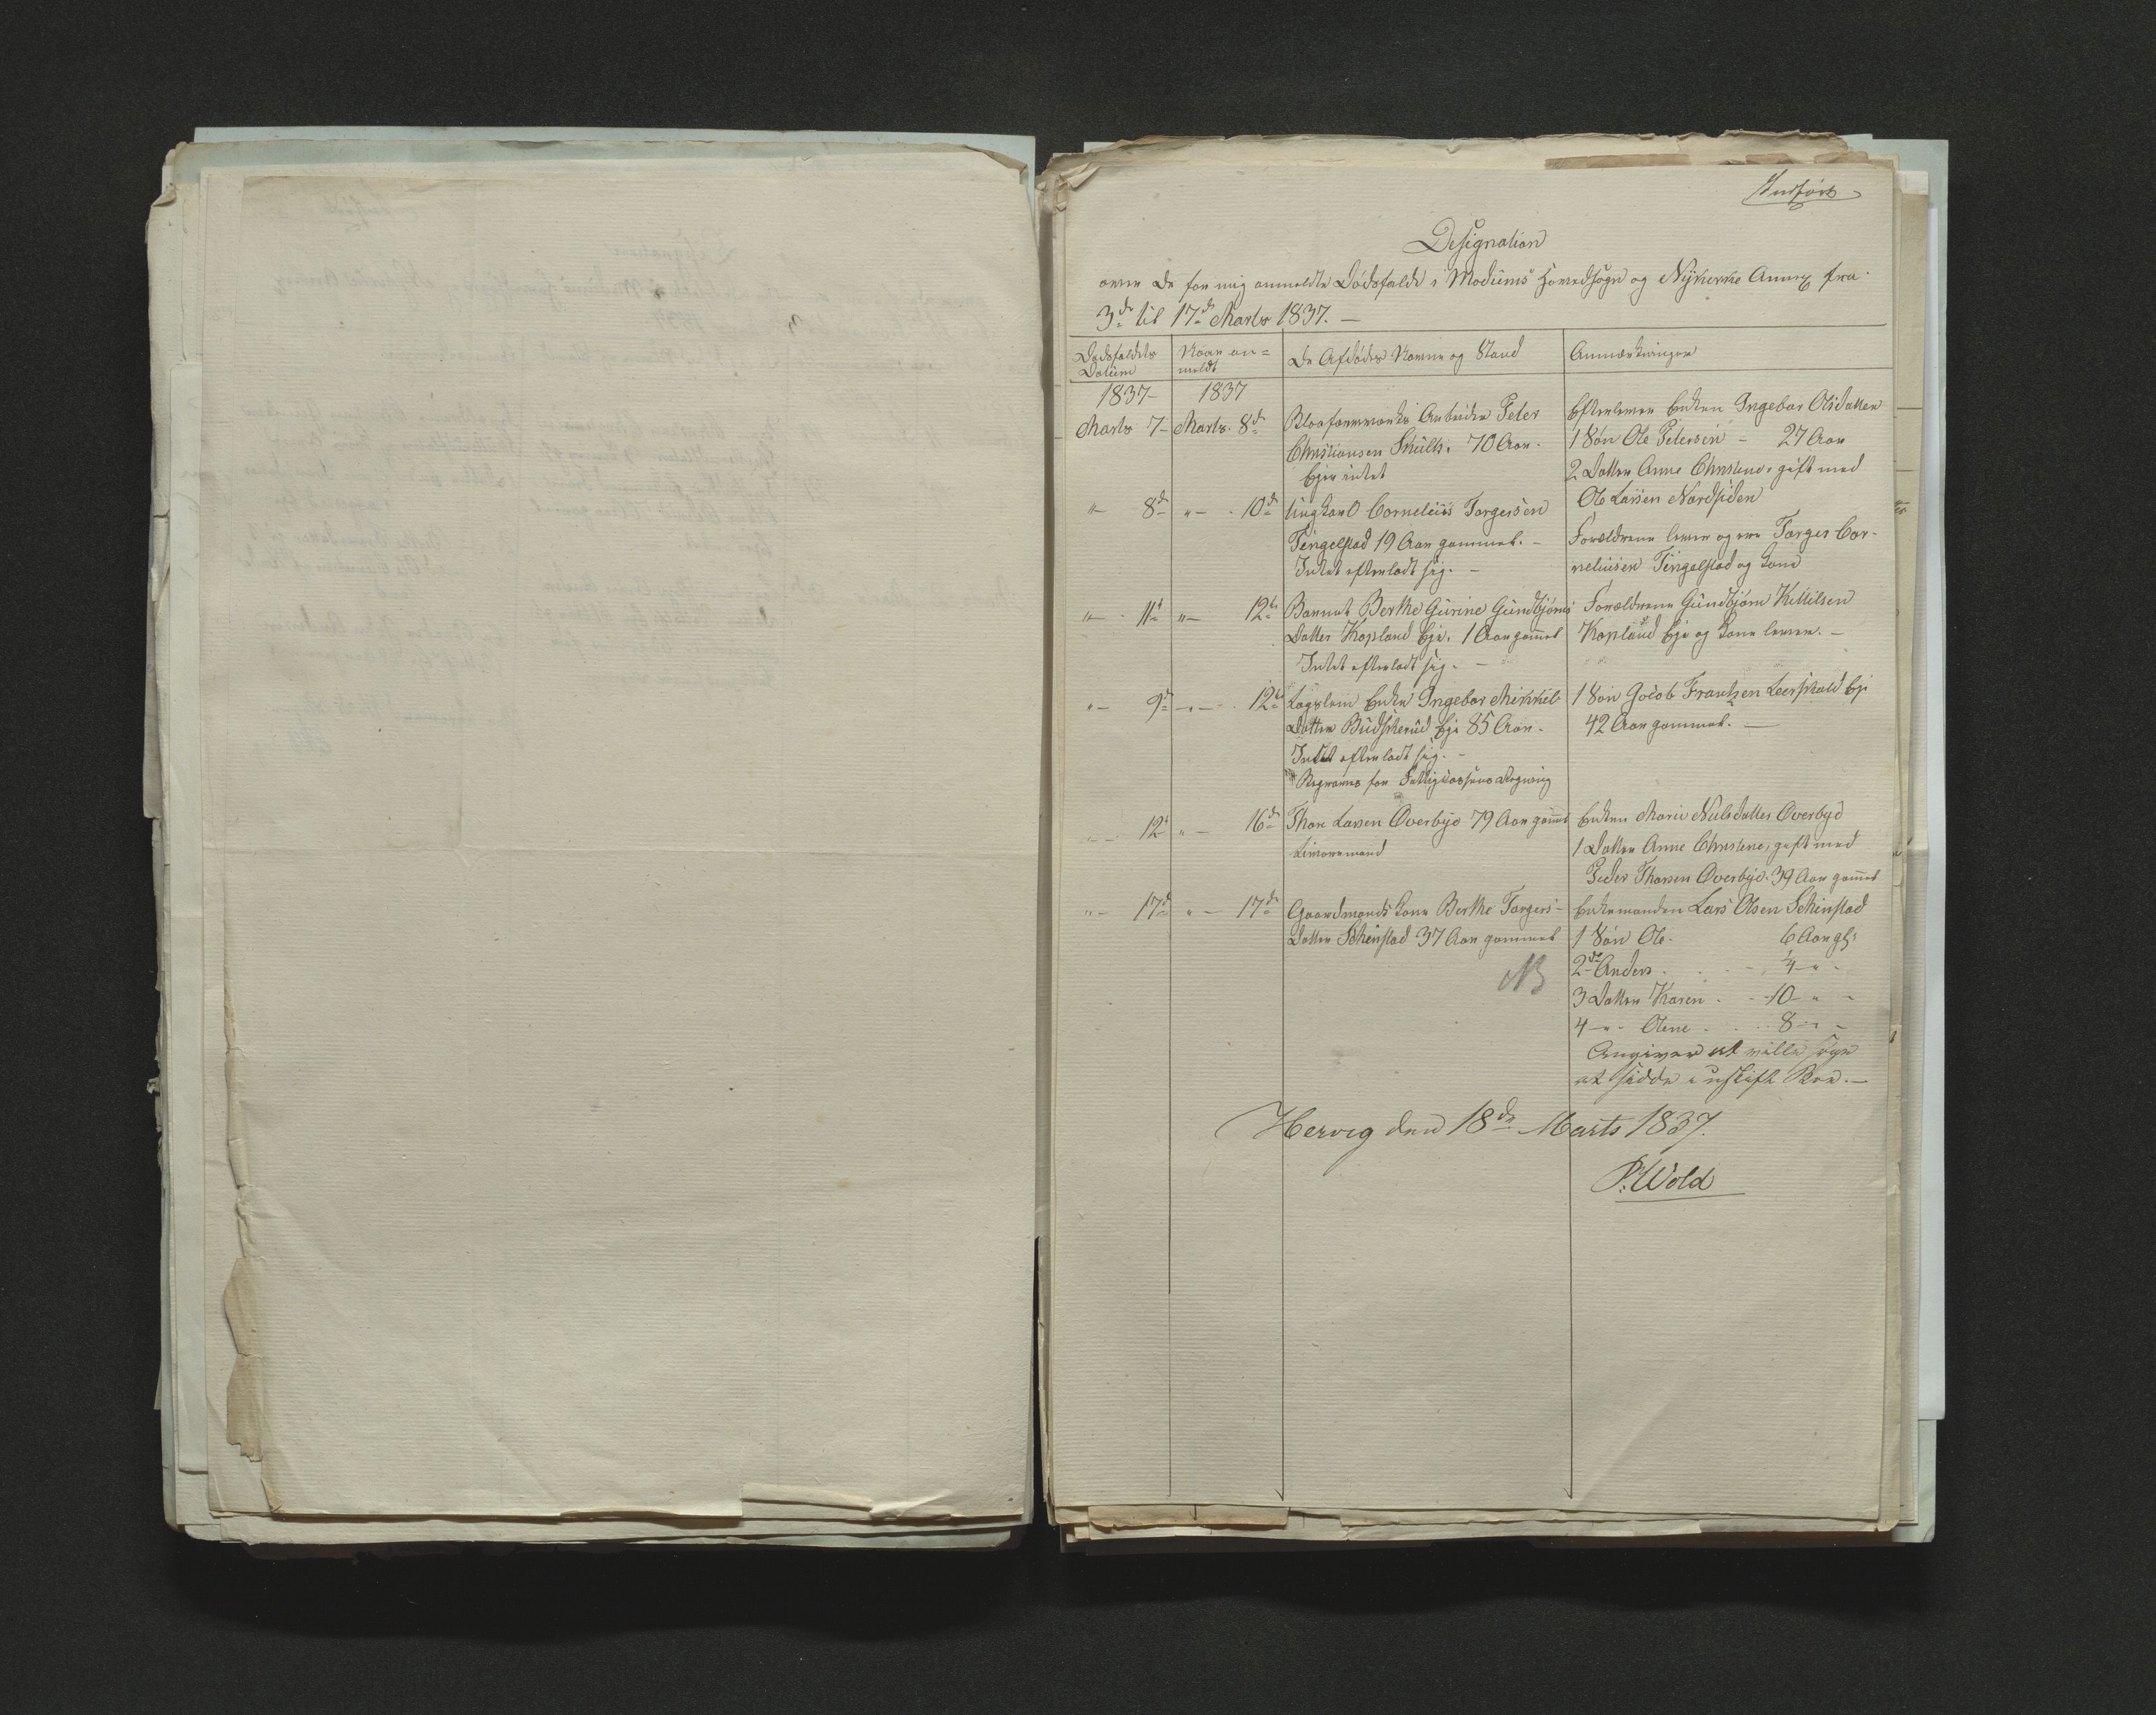 Indført
Designation
over de for mig anmeldte Dødsfald i Modums Hovedsogn og Nykirke Annex fra
3de til 17de Marts 1837. —
Dødsfaldets Datum
Naar an=meldt
De Afdødes Navne og Stand
Anmærkninger
1837- 1837
Marts 7- Marts. 8de Blaafarveværks Arbeider Peter
Christiansen 70 Aar.
Ejer intet
Efterlever Enken Ingebor Olsdatter
1 Søn Ole Petersen - 27 Aar
2 Datter Anne Christine, gift med
Ole Larsen Nordsiden
"- 8de "- 10de Ungkarl Cornelius Torgersen
Tingelstad 19 Aar gammel. -
Intet efterladt sig. -
Forældrene lever og ere Torger Cor-
neliusen Tingelstad og Kone
"- 11te "- 12te Barnet Berthe Gurine Gundbjørns
Datter Kopland Eje. 1 Aar gammel
Intet efterladt sig. -
Forældrene Gundbjørn Killilsen
Kopland Eje og Kone lever. -
"- 9de "- 12te Lægslem Enke Ingebor Mikkels
Datter Budskerud Eje 85 Aar.
Intet efterladt sig. -
Begraves for Fattigkassens Regning
1 Søn Jocob Frantzen Eje
42 Aar gammel. -
"- 12te "- 16de Thore Larsen Overbye 79 Aar gammel
Enken Marie Nielsdatter Overbye
1 Datter Anne Christine, gift med
Peder Thorsen Overbye. 39 Aar gammel
"- 17de "- 17de Gaardmands Kone Berthe Torgers-
Datter Schinstad 37 Aar gammel
NB
Enkemanden Lars Olsen Schinstad
1 Søn Ole. 6 Aar gl:
2de Anders. ¼ " -
3 Datter Karen. - 10 " -
4 -"- Olene . . 8 " -
Angiver at ville søge
at sidde i uskift Boe. —
Hervig den 18de Marts 1837.
P. Wold